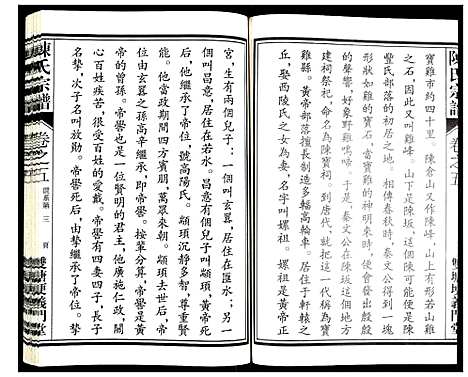 陳氏宗譜
卷之五
寶雞市約四十里。陳倉山又作陳峰，山上有形若山雞
之石，因又此山稱雞峰。山下是陳坂，這個可能便是陳
豐氏部落的居住之地。相傳春秋時，秦文公得到一塊
形狀如雞的寶石，當寶雞的神明來時，便會發出殷殷
的聲響，好象野雞鳴啼。于是，秦文公在陳坂這個地方
建祠祭祀，命名為陳寶祠。到唐代，就把這里改為寶
雞縣。黃帝部落擅長制造多輻高輪車。居住于軒轅之
丘，娶西陵氏之女為妻，名字叫嫘祖。嫘祖是黃帝正
宮，生有兩個兒子，一個叫玄囂，居住在江水。另一個兒
叫昌意，居住在若水。昌意的兒子叫顓頊，黃帝死
后，他繼承了帝位，號高陽氏。顓頊沉靜多智，尊重賢
能，執政期間四方賓服，萬眾來朝。顓頊去世后，帝位
由玄囂之孫高辛繼承，即帝嚳。按輩分算，帝嚳是黃
帝的曾孫。帝嚳也是一位賢明的君主，他廣施仁政，關
心百姓疾苦，很受百姓的愛戴。帝嚳有兩個兒子，長子
名叫摯，次子名叫放勛。帝嚳死后，由摯繼承了帝位。摯
陳氏宗譜
卷之五
世系第 三 頁
義門堂